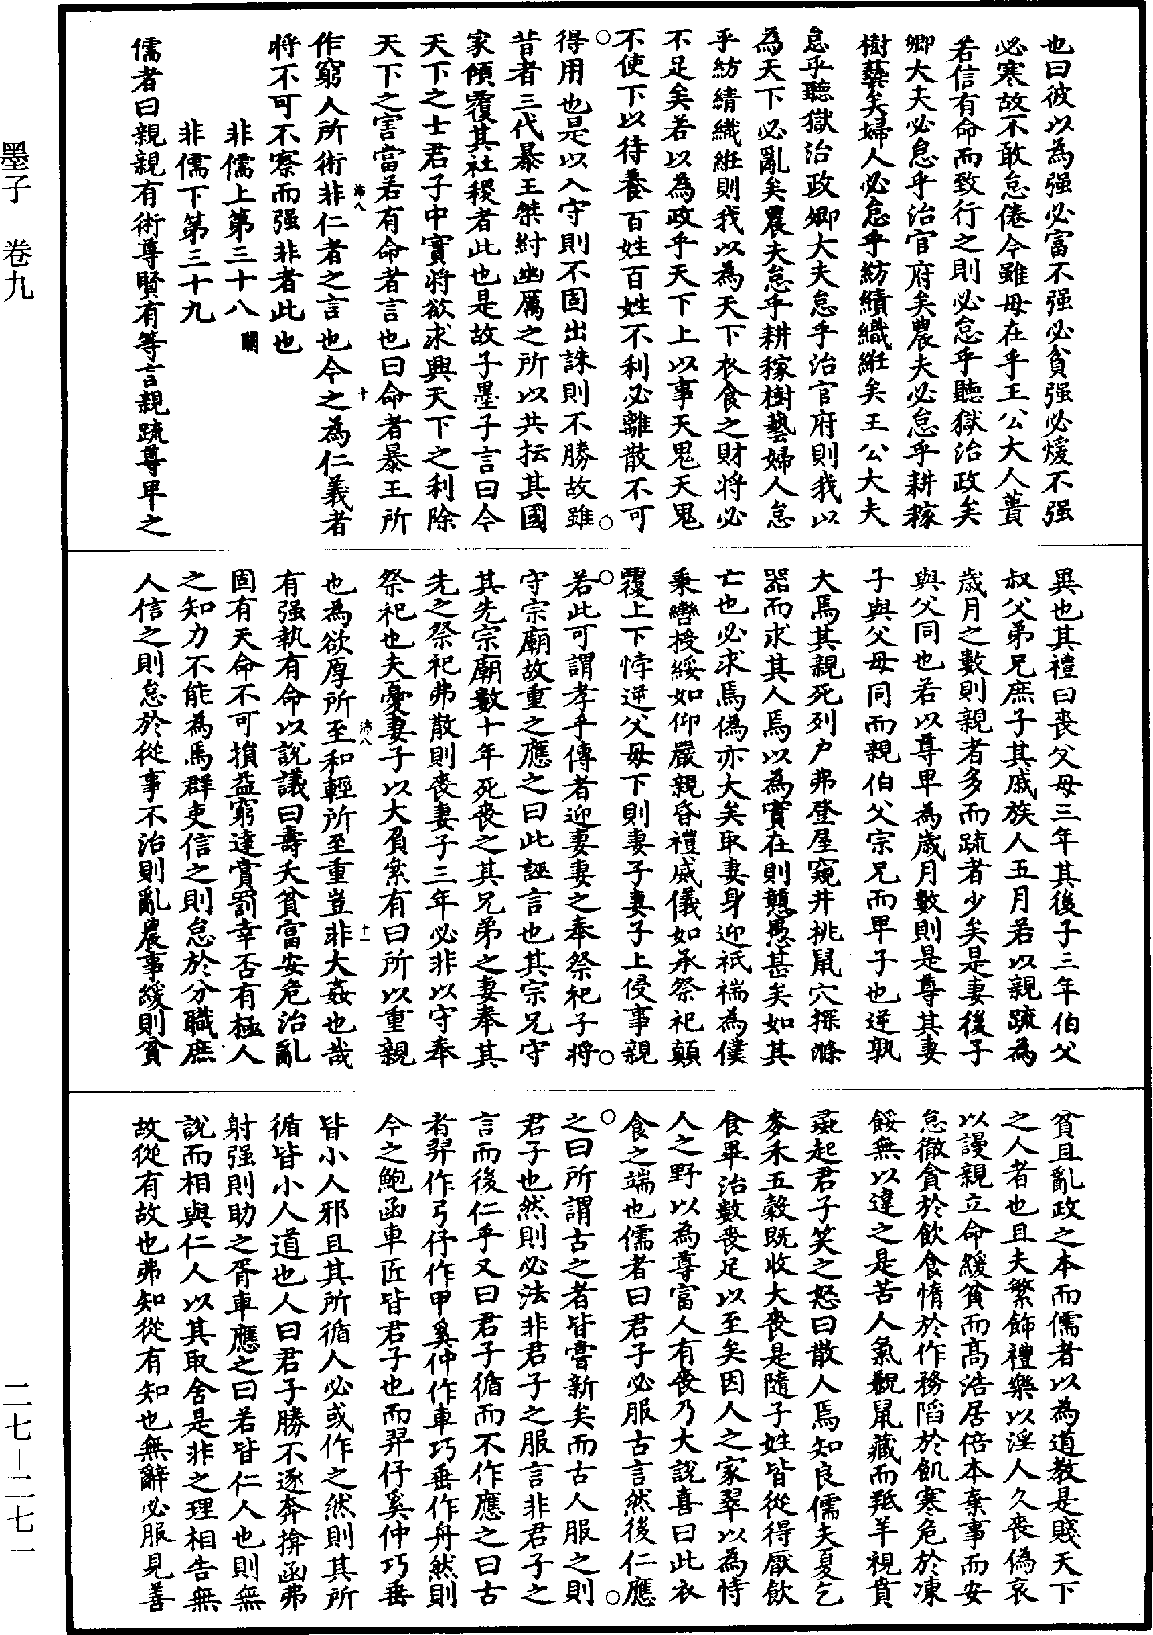 墨子 卷九
也曰彼以為强必富不强必貧强必煖不强
必寒故不敢怠倦今雖毋在乎王公大人蕢
若信有命而致行之則必怠乎聽獄治政矣
卿大夫必怠乎治官府矣農夫必怠乎耕稼
樹藝矣婦人必怠乎紡績織絍矣王公大夫
怠乎聽獄治政卿大夫怠乎治官府則我以
為天下必亂矣農夫怠乎耕稼樹藝婦人怠
乎紡績織絍則我以為天下衣食之財將必
不足矣若以為政乎天下上以事天鬼天鬼
不使下以待養百姓百姓不利必離散不可
○得用也是以入守則不固出誅則不勝故雖○
昔者三代暴王桀紂幽厲之所以共抎其國
家傾覆其社稷者此也是故子墨子言曰今
天下之士君子中實將欲求興天下之利除
天下之害當若有命者言也曰命者暴王所
沛八 十
作窮人所術非仁者之言也今之為仁義者
將不可不察而强非者此也
非儒上第三十八 闕
非儒下第三十九
儒者曰親親有術尊賢有等言親疏尊卑之
異也其禮曰喪父母三年其後子三年伯父
叔父弟兄庶子其戚族人五月若以親疏為
歲月之數則親者多而疏者少矣是妻後子
與父同也若以尊卑為歲月數則是尊其妻
子與父母同而親伯父宗兄而卑子也逆孰
大焉其親死列尸弗登屋窺井挑鼠穴探滌
器而求其人焉以為實在則戇愚甚矣如其
亡也必求焉偽亦大矣取妻身迎袛褍為僕
秉轡授綏如仰嚴親昏禮威儀如承祭祀顛
覆上下悖逆父母下則妻子妻子上侵事親
○若此可謂孝乎傳者迎妻妻之奉祭祀子將○
守宗廟故重之應之曰此誣言也其宗兄守
其先宗廟數十年死喪之其兄弟之妻奉其
先之祭祀弗散則喪妻子三年必非以守奉
祭祀也夫憂妻子以大負絫有曰所以重親
沛八 十一
也為欲厚所至和輕所至重豈非大姦也哉
有强執有命以說議曰壽夭貧富安危治亂
固有天命不可損益窮達賞罰幸否有極人
之知力不能為焉群吏信之則怠於分職庶
人信之則怠於從事不治則亂農事緩則貧
貧且亂政之本而儒者以為道教是賤天下
之人者也且夫繁飾禮樂以淫人久喪偽哀
以謾親立命緩貧而高浩居倍本棄事而安
怠徹貪於飲食惰於作務陷於飢寒危於凍
餒無以違之是苦人氣鼸鼠藏而羝羊視賁
彘起君子笑之怒曰散人焉知良儒夫夏乞
麥禾五穀既收大喪是隨子姓皆從得厭飲
食畢治數喪足以至矣因人之家翠以為恃
人之野以為尊富人有喪乃大說喜曰此衣
食之端也儒者曰君子必服古言然後仁應
○之曰所謂古之者皆嘗新矣而古人服之則○
君子也然則必法非君子之服言非君子之
言而後仁乎又曰君子循而不作應之曰古
者羿作弓伃作甲奚仲作車巧垂作舟然則
今之鮑函車匠皆君子也而羿伃奚仲巧垂
皆小人邪且其所循人必或作之然則其所
循皆小人道也人曰君子勝不逐奔揜函弗
射强則助之胥車應之曰若皆仁人也則無
說而相與仁人以其取舍是非之理相告無
故從有故也弗知從有知也無辭必服見善
二七－二七一